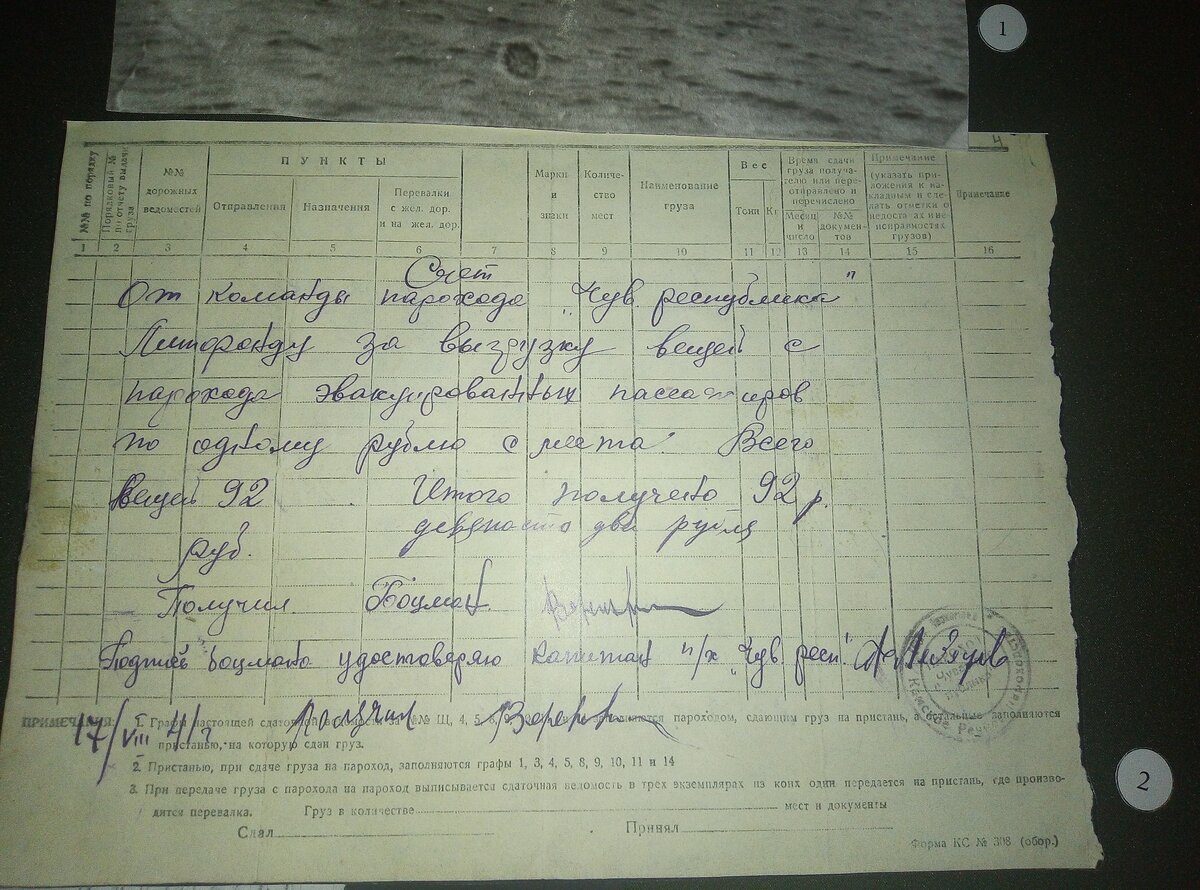 1
4
№№ по порядку
Порядковый № по отчету выдачи груза
№№ дорожных ведомостей
ПУНКТЫ
Отправления
Назначения
Перевалки с жел. дор. и на жел. дор.
Марки и знаки
Количество мест
Наименование груза
Вес
Тонн
Кг
Время сдачи груза получателю или переотправлено и перечислено
Месяц и число
№№ документов
Примечание (указать приложения к накладным и сделать отметки о недостачах и неисправностях грузов)
Примечание
1 2 3 4 5 6 7 8 9 10 11 12 13 14 15 16
Счет
От команды парохода „Чув. республика"
Литфонду за выгрузку вещей с
парохода эвакуированных пассажиров
по одному рублю с места. Всего
вещей 92. Итого получено 92 р.
девяносто два рубля
руб.
Получил Боцман
Подпись боцмана удостоверяю капитан п/х „Чув. респ."
17/VIII 41 г Получил
ПРИМЕЧАНИЯ: 1. Графы настоящей сдаточной ведомости за №№ заполняются пароходом, сдающим груз на пристань, а остальные заполняются
пристанью, на которую сдан груз.
2. Пристанью, при сдаче груза на пароход, заполняются графы 1, 3, 4, 5, 8, 9, 10, 11 и 14
3. При передаче груза с парохода на пароход выписывается сдаточная ведомость в трех экземплярах из коих один передается на пристань, где произво-
дится перевалка. Груз в количестве мест и документы
Сдал Принял
Форма КС № 308 (обор.)
2